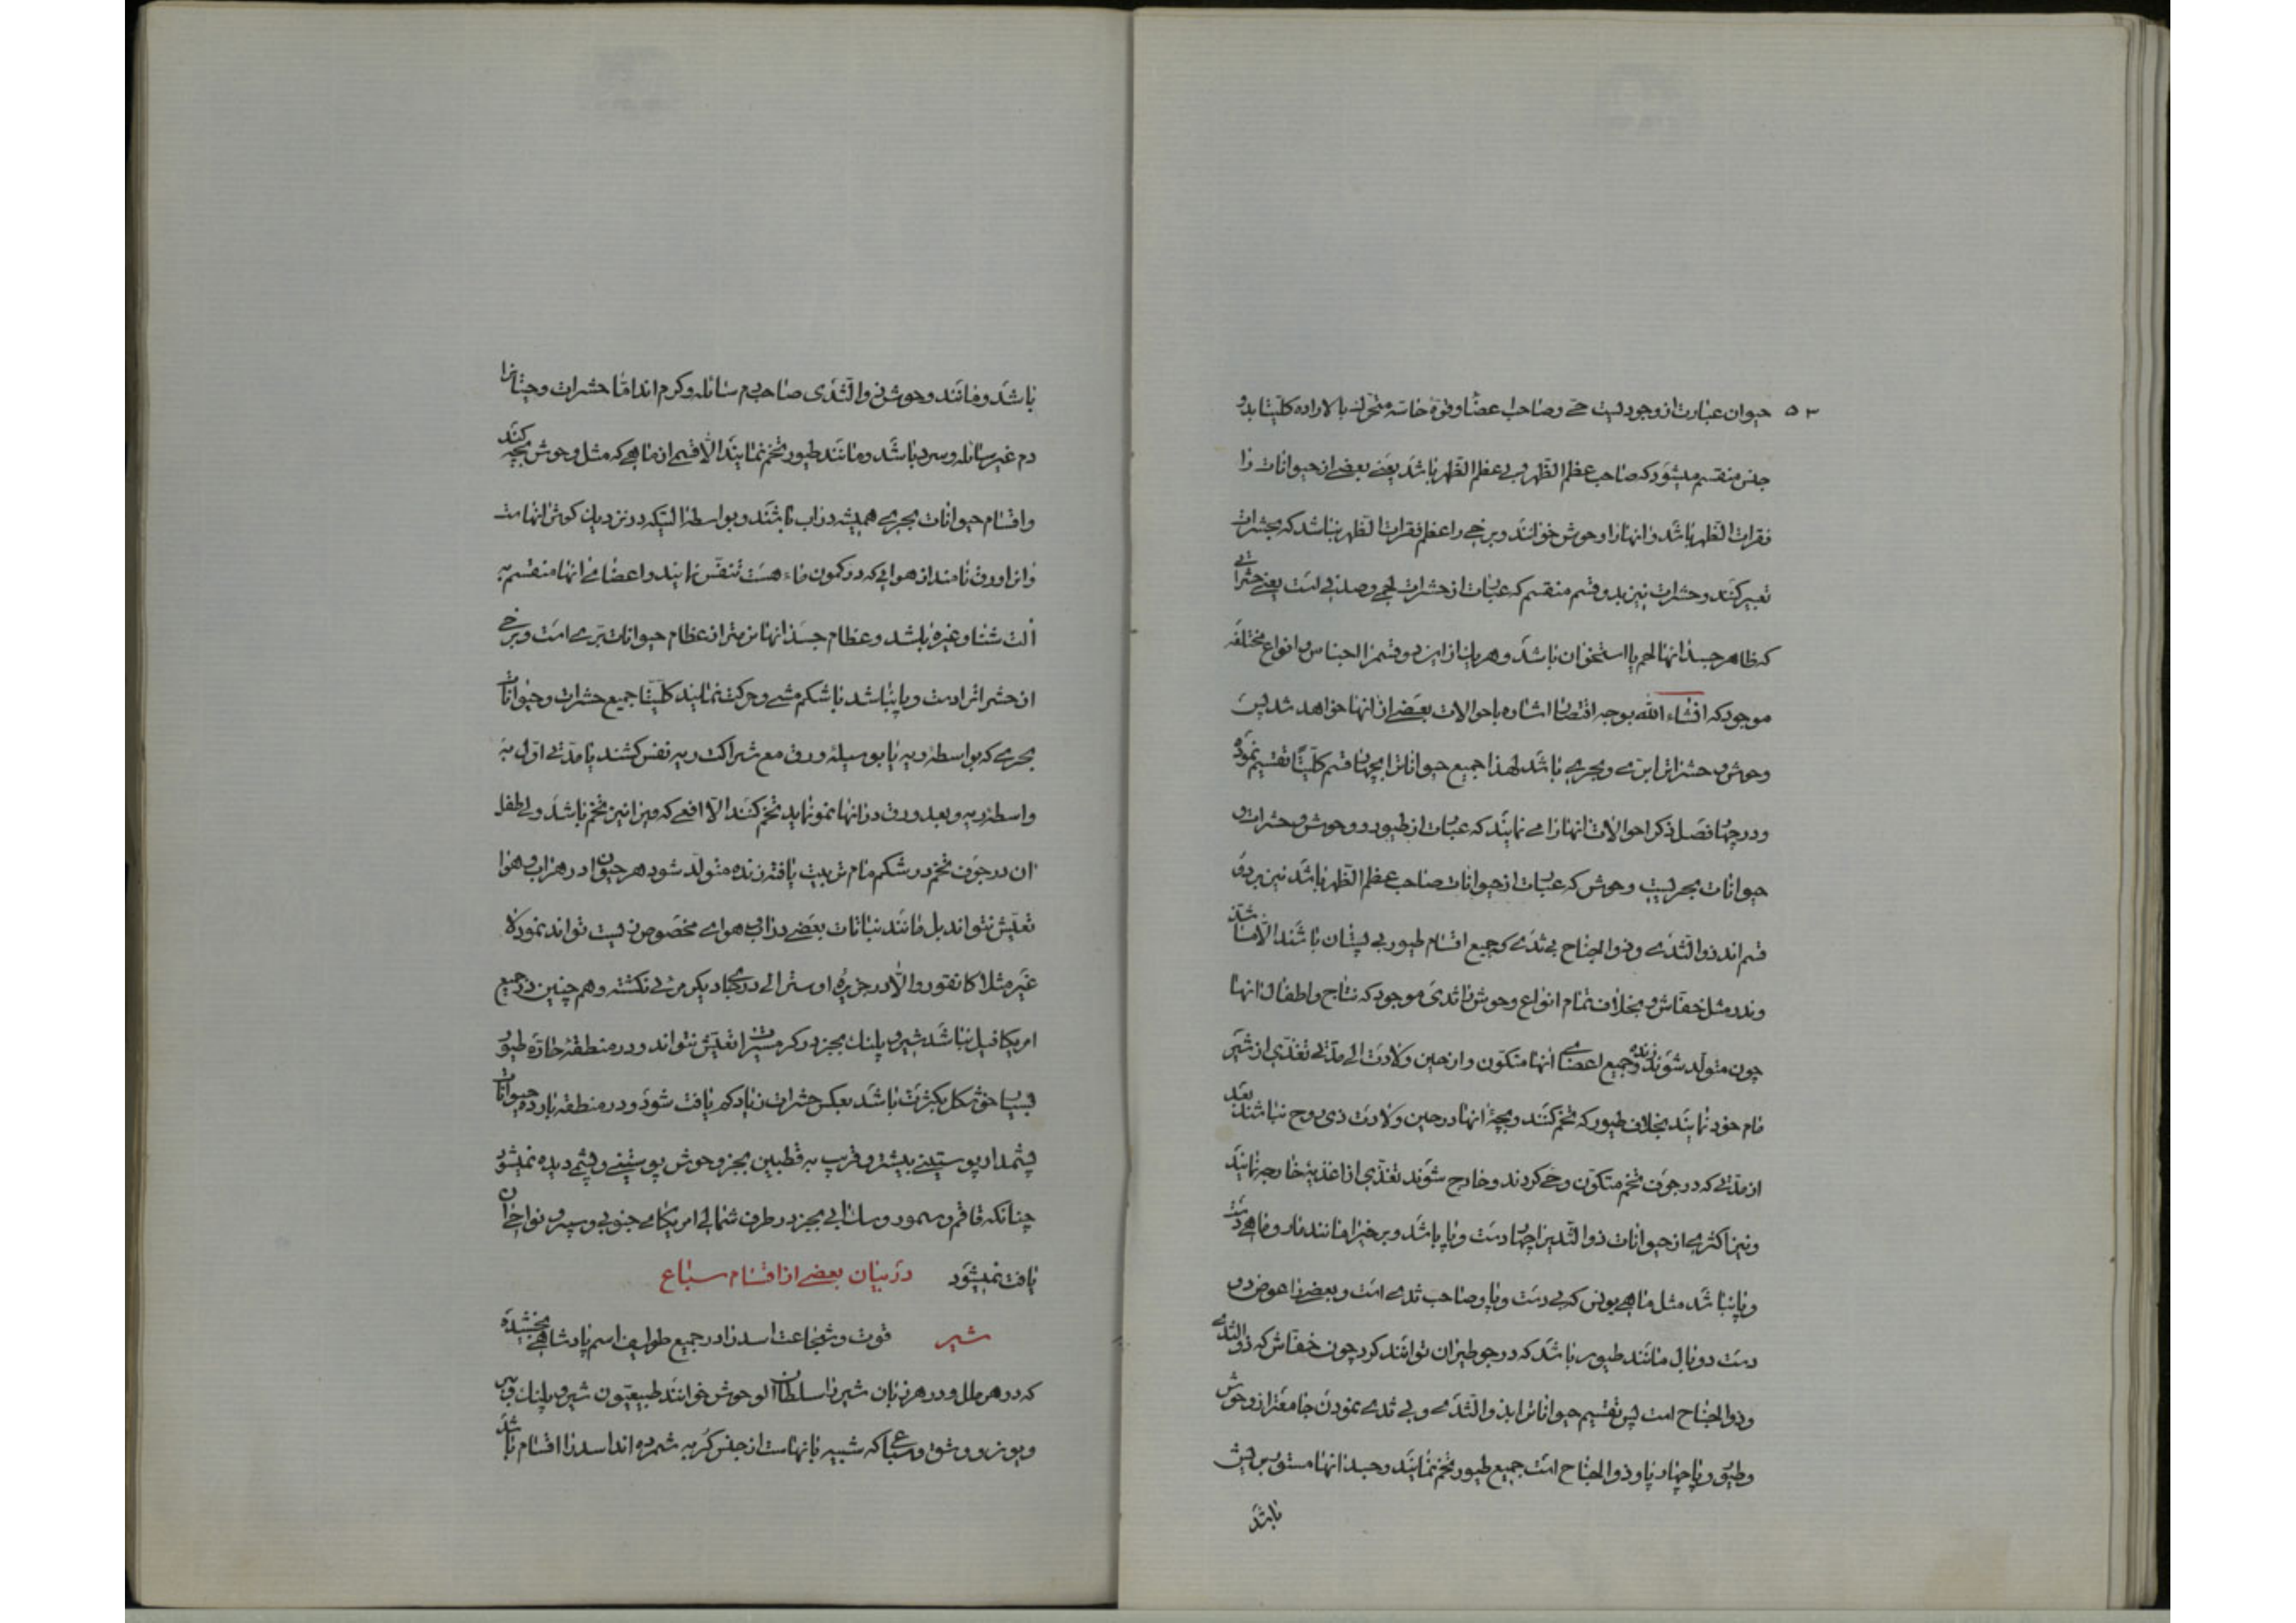 ۵۳ حیوان عبارت از وجودیست حی و صاحب اعضا و قوهٔ خاسه متحرک بالاراده کلیتا بدو
جنس منقسم میشود که صاحب عظم الظهر و بی عظم الظهر باشد یعنی بعضی از حیوانات را
فقرات الظهر باشد و انهارا وحوش خوانند و برخی را عظم فقرات الظهر نباشد که بحشرات
تعبیر کنند و حشرات نیز بدو قسم منقسم که عبارت از حشرات لحمی و صدفی است یعنی حشراتی
که ظاهر جسد انها لحم یا استخوان باشد و هر یک از این دو قسم را اجناس و انواع مختلفه
موجود که انشاء الله بوجه اقتضا اشاره باحوالات بعضی از انها خواهد شد پس
وحوش و حشرات را بری و بحری باشد لهذا جمیع حیوانات را بچهار قسم کلیتا تقسیم نموده
و در چهار فصل ذکر احوالات انهارا می نمایند که عبارت از طیور و وحوش و حشرات و
حیوانات بحریست وحوش که عبارت از حیوانات صاحب عظم الظهر باشد نیز بر دو
قسم اند ذو الثدی و ذو الجناح بی ثدی که جمیع اقسام طیور بی پستان باشند الا
وندره مثل خفاش و بخلاف تمام انواع وحوش را ثدی موجود که نتاج و اطفال انها
چون متولد شوند زنده و جمیع اعضای انها متکون و از حین ولادت الی مدتی تغذی از شیر
مام خود نمایند بخلاف طیور که تخم کنند و بچهٔ انها در حین ولادت ذی روح نباشند بعد
از مدتی که در جوف تخم متکون و حی کردند و خارج شوند تغذی از اغذیهٔ خارجه نمایند
و نیز اکثری از حیوانات ذو الثدیرا چهار دست و پا باشد و برخیرا مانند مار و ماهی دست
و پا نباشد مثل ماهی یونس که بی دست و پا و صاحب ثدی است و بعضی را عوض دو
دست دو بال مانند طیور باشد که در جو طیران توانند کرد چون خفاش که ذو الثدی
و ذو الجناح است پس تقسیم حیوانات را بذو الثدی و بی ثدی نمودن جامعتر از وحوش
و طیور و یا چهار پا و ذو الجناح است جمیع طیور تخم نمایند و جسد انها مستور بریش
باشد
باشد و مانند وحوش ذو الثدی صاحب دم سائله و کرم اند اما حشرات و حیتانرا
دم غیر سائله و سرد باشد و مانند طیور تخم نمایند الا قسمی از ماهی که مثل وحوش بچه کنند
و اقسام حیوانات بحری همیشه در اب باشند و بواسطهٔ التیکه در نزدیک کوش انهاست
و انرا ورق نامند از هوائی که در کمون ماء هست تنفس نمایند و اعضای انها منقسم به
الت شنا و غیره باشد و عظام جسد انها نرمتر از عظام حیوانات بری است و برخی
از حشراترا دست و پا نباشد با شکم مشی و حرکت نمایند کلیتا جمیع حشرات و حیوانات
بحری که بواسطه ریه یا بوسیلهٔ ورق مع شراکت ریه نفس کشند یا مدتی اول به
واسطهٔ ریه و بعد ورق در انها نمو نماید تخم کنند الا افعی که ویرا نیز تخم باشد ولی طفل
ان در جوف تخم در شکم مام تربیت یافته زنده متولد شود هر حیوان در هر اب و هوا
تعیش نتواند بل مانند نباتات بعضی در اب و هوای مخصوص زیست تواند نمود لا
غیر مثلا کانقورو الا در جزیرهٔ اوسترالی در جای دیکر مرئی نکشته و هم چنین در جمیع
امریکا فیل نباشد شیر و پلنک بجز در کرمسیرات تعیش نتواند و در منطقهٔ حاره طیور
بسیار خوشکل بکثرت باشد بعکس حشرات زیاد کم یافت شود و در منطقه بارده حیوانات
پشمدار پوستینی بیشتر و قریب به قطبین بجز وحوش پوستینی و پشمی دیده نمیشود
چنانکه قاقم و سمور و سنجابی بجز در طرف شمالی امریکای جنوبی و سیبر و نواحی ان
یافت نمیشود در بیان بعضی از اقسام سباع
شیر قوت و شجاعت اسدرا در جمیع طوایف اسم پادشاهی بخشیده
که در هر ملل و در هر زبان شیررا سلطان الوحوش خوانند طبیعیون شیر و پلنک و ببر
و یوز و وشق و سباعی که شبیه بانهاست از جنس کربه شمرده اند اسدرا اقسام باشد